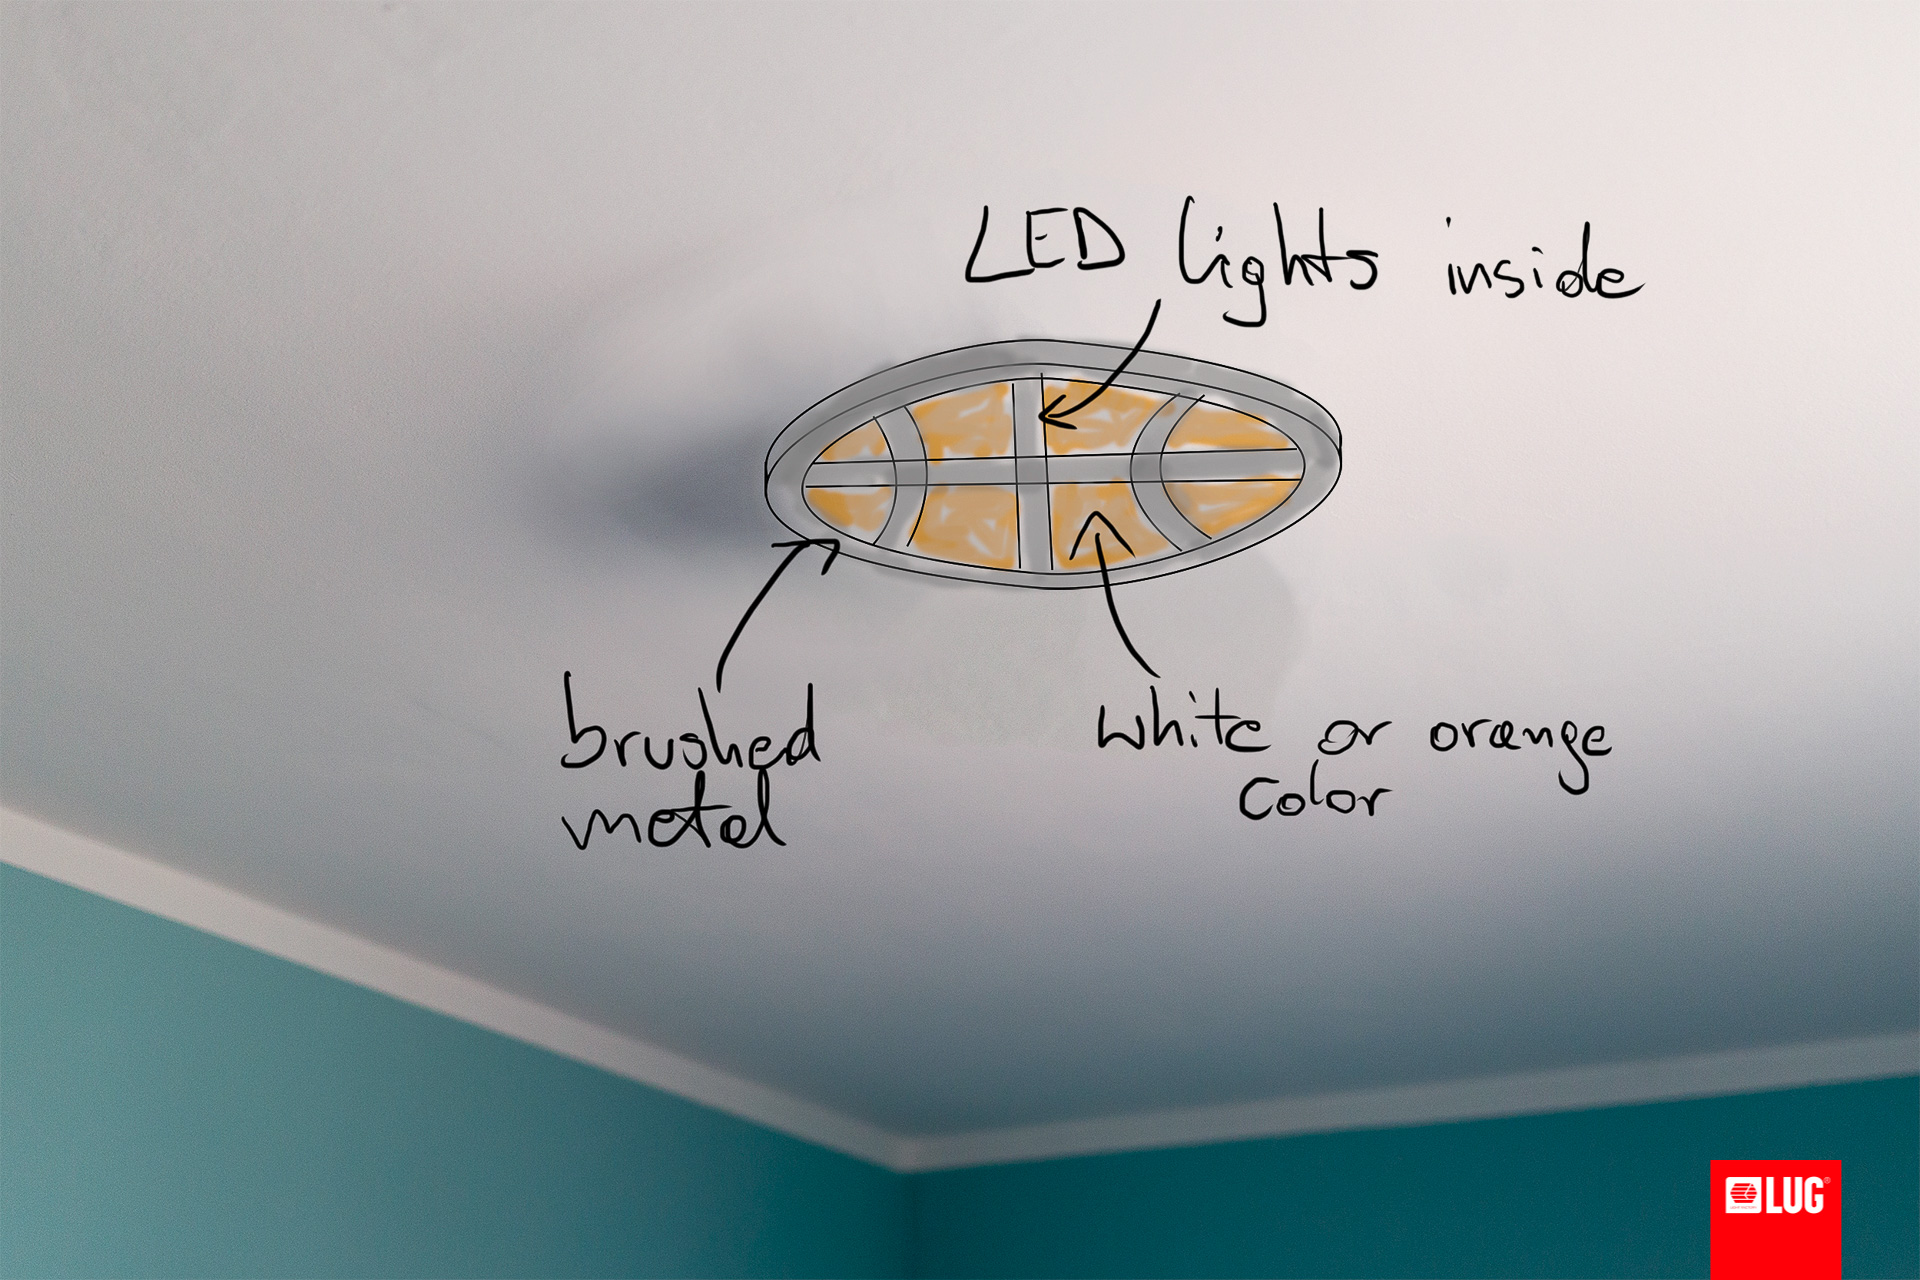 LED lights inside
brushed
metal
white or orange
color
LUG®